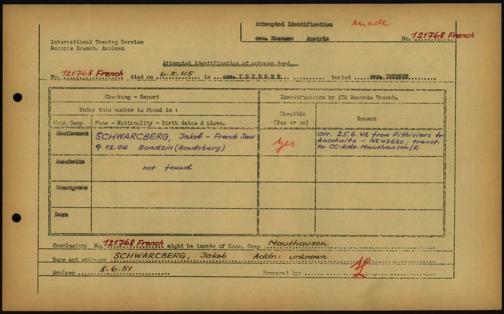 Attempted Identification made
International Tracing Service
com. Ebensee Austria
No. 121768 French
Records Branch, Arolsen
Attempted identification of unknown dead.
No. 121768 French died on 6.5.45 in com. EBENSEE buried com. EBENSEE
Checking - Report
Identification by ITS Records Branch.
Under this number is found in :
Conc. Camp
Name - Nationality - Birth dates & place.
Possible
(Yes or no)
Reason
Mauthausen
SCHWARCBERG, Jakob - French Jew
9.12.04 Bendzin (Bendsburg)
yes
arr. 25.6.42 from Pithiviers to
Auschwitz - No 42620; transf.
to CC-Kdo. Mauthausen/E
Auschwitz
not found
Buchenwald
Dora
Conclusion No. 121768 French might be inmate of Conc. Camp Mauthausen
Name and address SCHWARCBERG, Jakob Addr: unknown
Arolsen 8.6.51 Prepared by